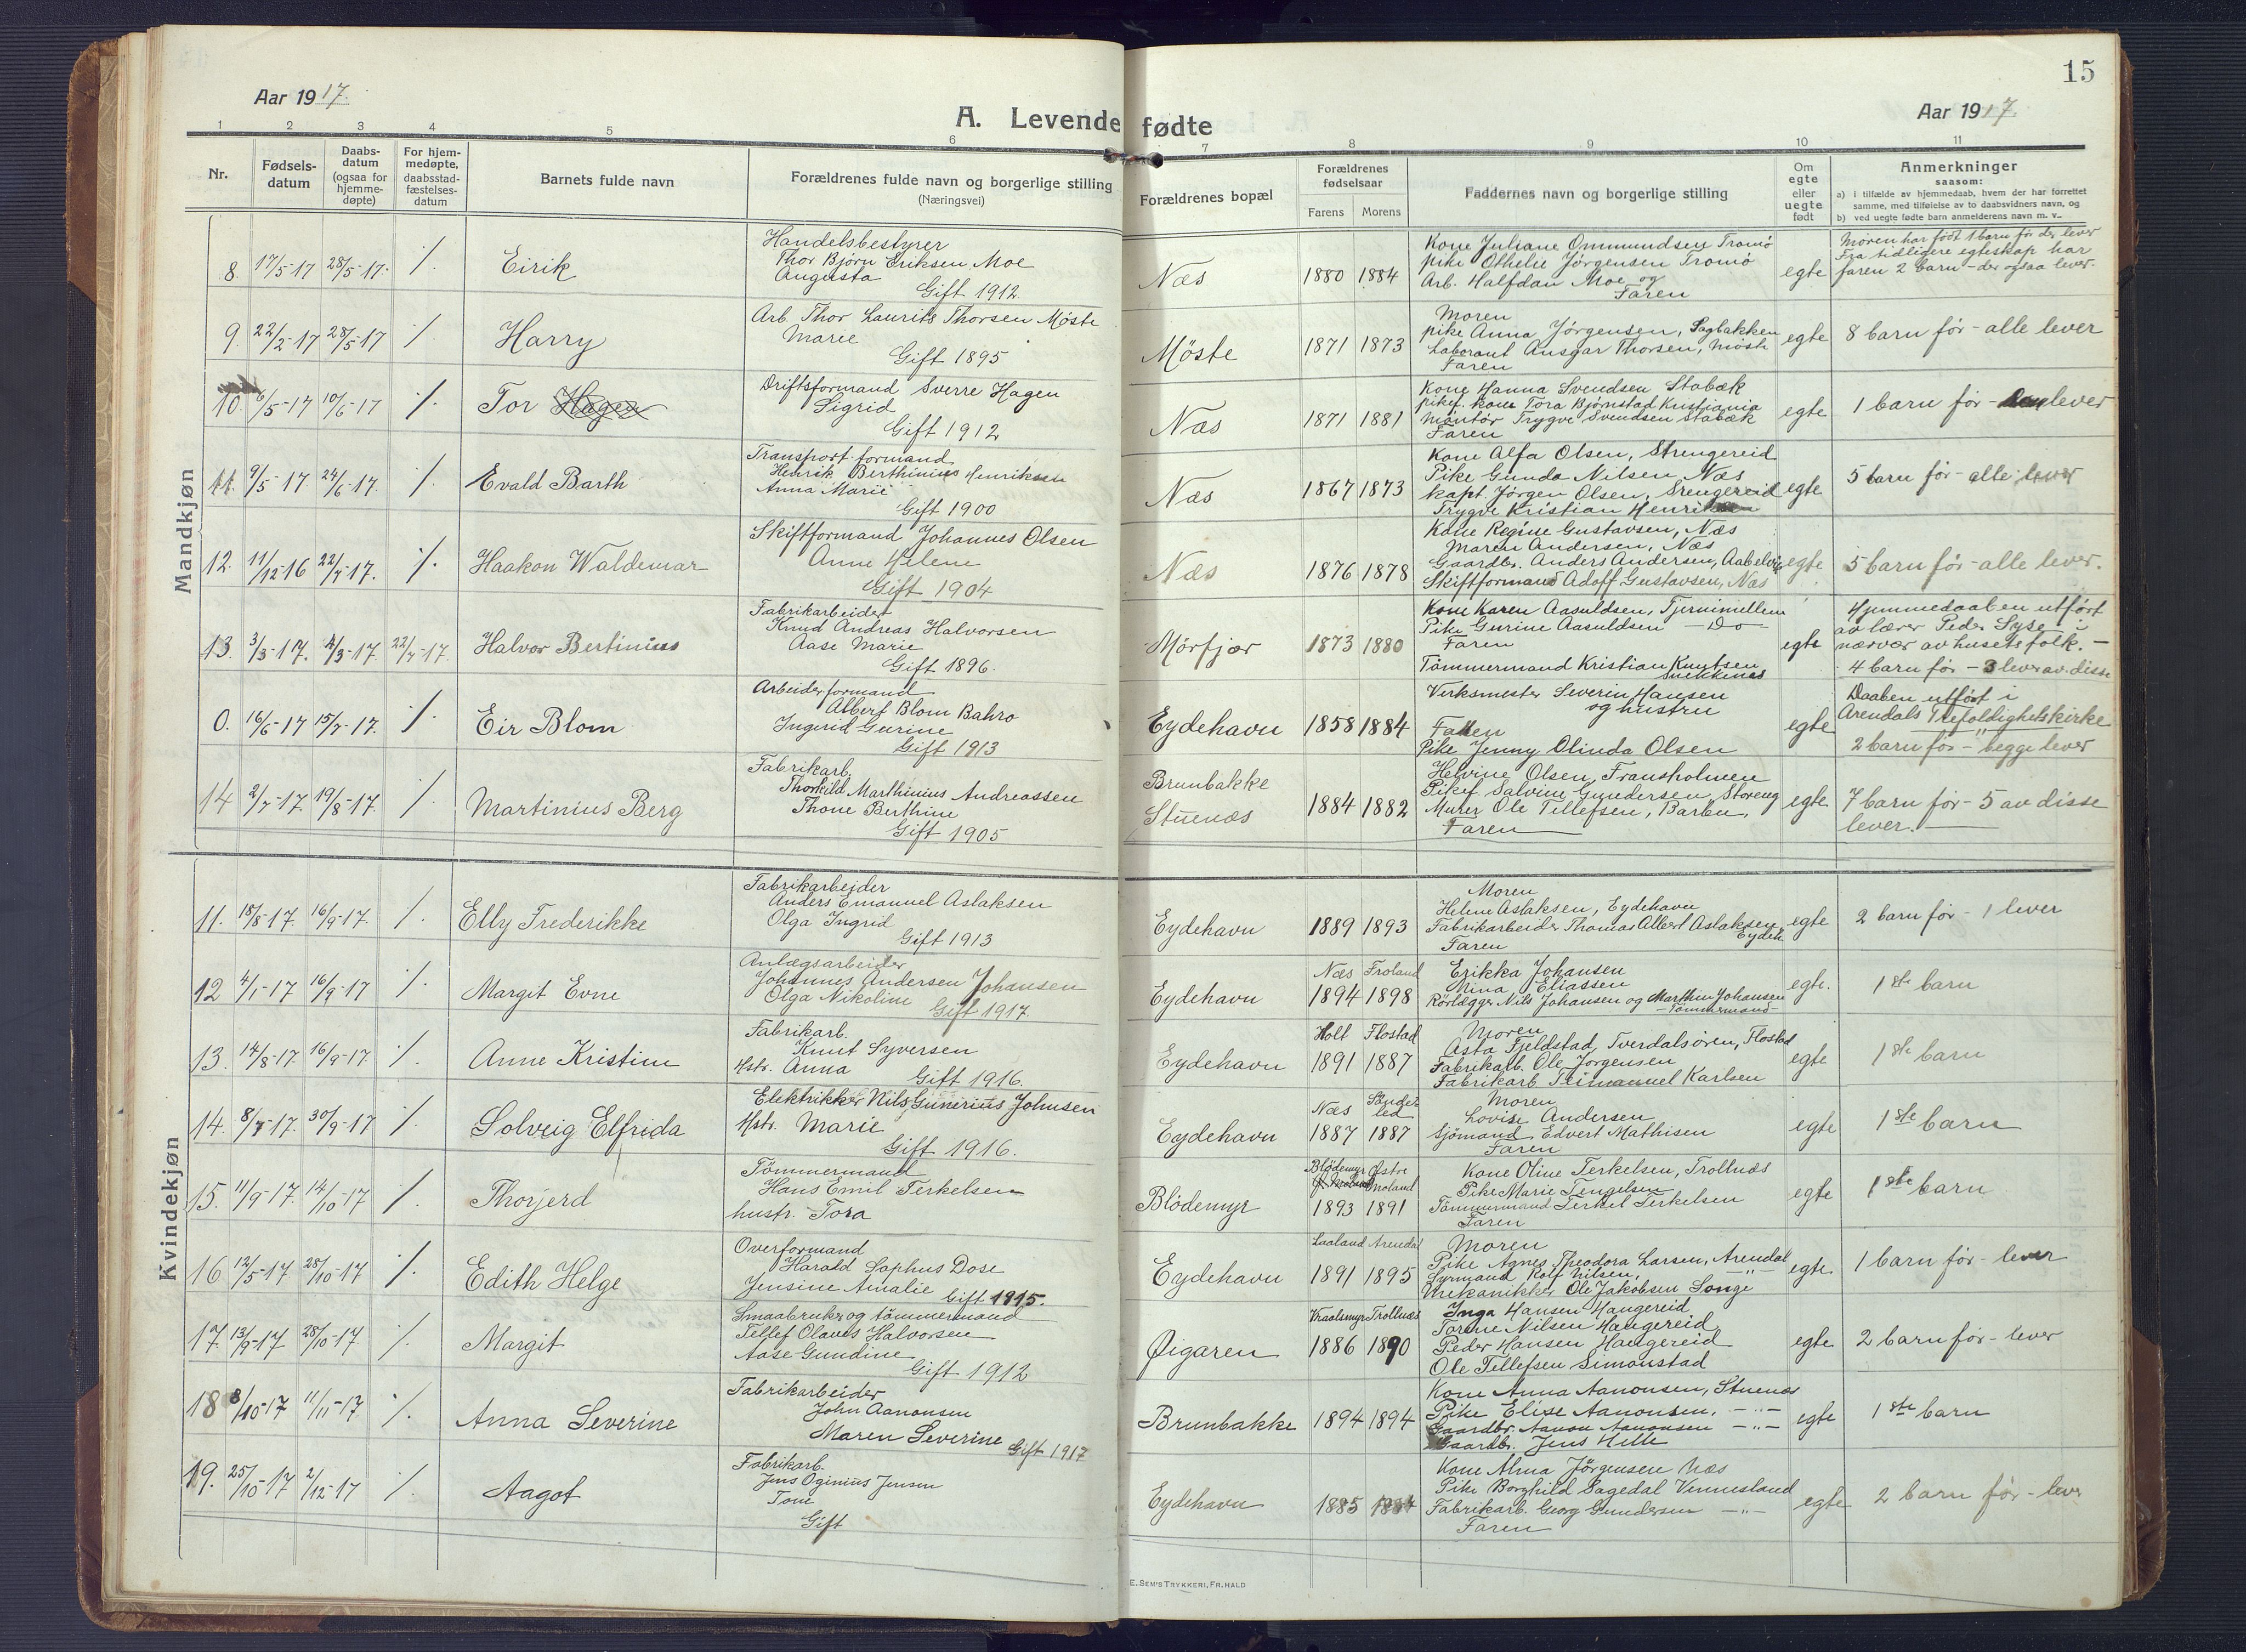 15
Aar 1917.
Aar 1917.
A. Levendefødte
1 2 3 4 5 6 7 8 9 10 11
Nr.
Fødselsdatum
Daabsdatum (ogsaa for hjemmedøpte)
For hjemmedøpte, daabsstadfæstelsesdatum
Barnets fulde navn
Forældrenes fulde navn og borgerlige stilling
(Næringsvei)
Forældrenes bopæl
Forældrenes fødselsaar
Farens Morens
Faddernes navn og borgerlige stilling
Om egte eller uegte født
Anmerkninger
saasom:
a) i tilfælde av hjemmedaab, hvem der har forrettet samme, med tilføielse av to daabsvidners navn, og
b) ved uegte fødte barn anmelderens navn m. v.
Mandkjøn
8. 17/5-17 28/5-17. ./. Eirik
Handelsbestyrer
Thor Bjørn Eriksen Moe
Augusta
Gift 1912
Næs 1880 1884
Kone Juliane Ommundsen Tromø
pike Othelie Jørgensen Tromø
Arb. Halfdan Moe og
Faren
egte
Moren har født 1 barn før der lever
Fra tidligere egteskap har
faren 2 barn - der ogsaa lever.
9. 22/2-17 28/5-17 ./. Harry
Arb. Thor Laurits Thorsen Møste
Marie
Gift 1895
Møste 1871 1873
Moren
pike Anna Jørgensen, Sagbakken
Laborant Ansgar Thorsen, Møste
Faren
egte
8 barn før - alle lever
10. 6/5-17 10/6-17 ./. Tor Hagen
Driftsformand Sverre Hagen
Sigrid
Gift 1912
Næs 1871 1881
Kone Hanna Svendsen Stabæk
kone Tora Bjørnstad Kristiania
Montør Trygve Svendsen Stabæk
Faren
egte
1 barn før - lever
11. 9/5-17 24/6-17. ./. Evald Barth
Transport-formand
Henrik Berthinius Henriksen
Anna Marie
Gift 1900
Næs 1867 1873
Kone Alfa Olsen, Strengereid
Pike Gunda Nilsen Næs
Kapt. Jørgen Olsen, Srengereid
Trygve Kristian Henriksen
egte
5 barn før - alle lever
12. 11/12-16 22/7-17. ./. Haakon Waldemar
Skiftformand Johannes Olsen
Anne Helene
Gift 1904
Næs 1876 1878
Kone Regine Gustavsen, Næs
Maren Andersen, Næs
Gaardbr. Anders Andersen, Aabelvik
Skiftformand Adolf Gustavsen, Næs
egte
5 barn før - alle lever.
13. 3/3-17. 4/3-17. 22/7-17. Halvor Bertinius
Fabrikarbeider
Knud Andreas Halvorsen
Aase Marie
Gift 1896.
Mørfjær 1873 1880
Kone Karen Aasuldsen, Tjernimellem
Pike Gurine Aasuldsen - Do -
Faren
Tømmermand Kristian Knutsen
Snekkenes
egte
Hjemmedaaben utført
av lærer Peder Syse i
nærvær av husets folk. -
4 barn før - 3 lever av disse
0. 16/6-17 15/7-17. ./. Eir Blom
Arbeiderformand
Albert Blom Bahro
Ingerid Gurine
Gift 1913
Eydehavn 1858 1884
Verksmester Severin Hansen
og hustru
Faren
Pike Jenny Olinda Olsen
egte
Daaben utført i
Arendals Trefoldighetskirke
2 barn før - begge lever
14 2/7-17. 19/8-17. ./. Martinius Berg
Fabrikarb.
Thorkild Marthinius Andreassen
Thone Berthine
Gift 1905
Brunbakke
Stuenæs 1884 1882
Helvine Olsen, Fransholmen
Pike Salvine Gundersen, Storeng
Murer Ole Tellefsen, Barbu,
Faren
egte
7 barn før - 5 av disse
lever.
Kvindekjøn
11. 18/8-17. 16/9-17. ./. Elly Frederikke
Fabrikarbeider
Anders Emanuel Aslaksen
Olga Ingrid
Gift 1913
Eydehavn 1889 1893
Moren
Helene Aslaksen, Eydehavn
Fabrikarbeider Thomas Albert Aslaksen,
Eydeh.
Faren
egte
2 barn før - 1 lever
12 4/1-17 16/9-17 ./. Margit Evne
Anlægsarbeider
Johannes Andersen Johansen
Olga Nikoline Gift 1917.
Eydehavn
Næs Froland
1894 1898
Erikka Johansen
Mina Eliassen
Rørlægger Nils Johansen og Marthin Johansen
- Tømmermand -
egte.
1ste barn
13. 14/8-17 16/9-17 ./. Anne Kristine
Fabrikarb.
Knut Syversen
Hstr. Anna Gift 1916.
Eydehavn
Holt Flostad
1891 1887
Moren
Asta Fjeldstad, Tverdalsøren, Flostad
Fabrikarb. Ole Jørgensen
Fabrikarb. Karlsen
egte
1ste barn
14. 8/7-17. 30/9-17 ./. Solveig Elfrida
Elektriker Nils Gunerius Johnsen
Hstr. Marie
Gift 1916.
Eydehavn
Næs Søndeled
1887 1887
Moren
Lovise Andersen
Sjømand Edvert Mathisen
Faren
egte
1ste barn
15. 11/9-17. 14/10-17 ./. Thorjerd
Tømmermand
Hans Emil Terkelsen
hustr. Tora
Blødemyr
Blødemyr Østre
Ø. Moland Moland
1893 1891
Kone Oline Terkelsen, Trollnæs
Pike Marie Tengelsen
Tømmermand Terkel Terkelsen
Faren
egte
1ste barn
16 12/5-17 28/10-17 ./. Edith Helge
Overformand
Harald Sophus Dose
Jensine Amalie Gift 1915.
Eydehavn
Laaland Arendal
1891 1895
Moren
Pike Agnes Theodora Larsen, Arendal
Styrmand Rolf Nilsen, -"-
Mekanikker Ole Jakobsen Songe
egte
1 barn før - lever
17. 13/9-17 28/10-17 ./. Margit
Smaabruker og tømmermand
Tellef Olaves Halvorsen
Aase Gundine
Gift 1912
Øigaren
Vraalsmyr Trollnæs
1886 1890
Inga Hansen Haugereid
Torine Nilsen Haugereid
Peder Hansen Haugereid
Ole Tellefsen Simonstad
egte
2 barn før - lever
18 8/10-17 11/11-17. ./. Anna Severine
Fabrikarbeider
John Aanonsen
Maren Severine Gift 1917
Brunbakke 1894 1894
Kone Anna Aanonsen, Stuenæs
Pike Elise Aanonsen, -"-
Gaardbr. Aanon Aanonsen -"-
Gaardbr. Jens Helle
egte
1ste barn
19. 25/10-17 2/12-17 ./. Aagot
Fabrikarb.
Jens Oginius Jensen
Tone
Gift
Eydehavn 1885 1884
Kone Alma Jørgensen Næs
Pike Borghild Sagedal Vennesland
Fabrikarb. Georg Gundersen -"-
Faren
egte
2 barn før - lever
E. SEM'S TRYKKERI, FR.HALD